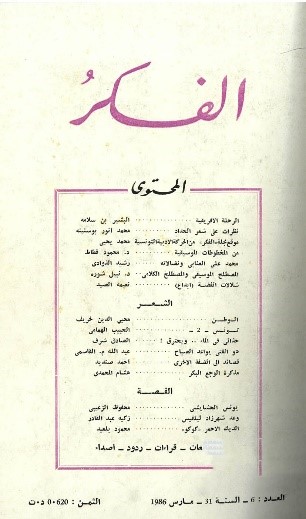 الفكرُ
المحتوى
الرحلة الافريقية ........ البشير بن سلامة
نظرات على شعر الحداد ........ محمد أنور بوسنينة
موقع مجلة «الفكر» من الحركة الأدبية التونسية محمد يحيى
من المخطوطات الموسيقية ........ د. محمود قطاط
محمد علي الحامي ونضالاته ........ رشيد الذوادي
المصطلح الموسيقي والمصطلح الكلامي .. د. نبيل شورة
شلالات الفضة (ابداع) ........ نعيمة الصيد
الشعر
الوطن ........ محيي الدين خريف
تونس - 2 - ........ الحبيب الهمامي
حذائي في الماء .. ويحترق ! ........ الصادق شرف
ذو الفتى يواعد الصباح ........ عبد الله م. القاسمي
قصائد الى الضفة الاخرى ........ احمد
مذكرة الوجع المبكر ........ هشام المحمدي
القصة
يونس الخشايشي ........ محفوظ الزعيبي
وعد شهرزاد لبلقيس ........ زكية عبد القادر
الديك الاحمر «كوكو» ........ محمود بلعيد
قراءات - ردود - أصداء
العدد : 6 - السنة 31 - مارس 1986
الثمن : 0.620 د.ت